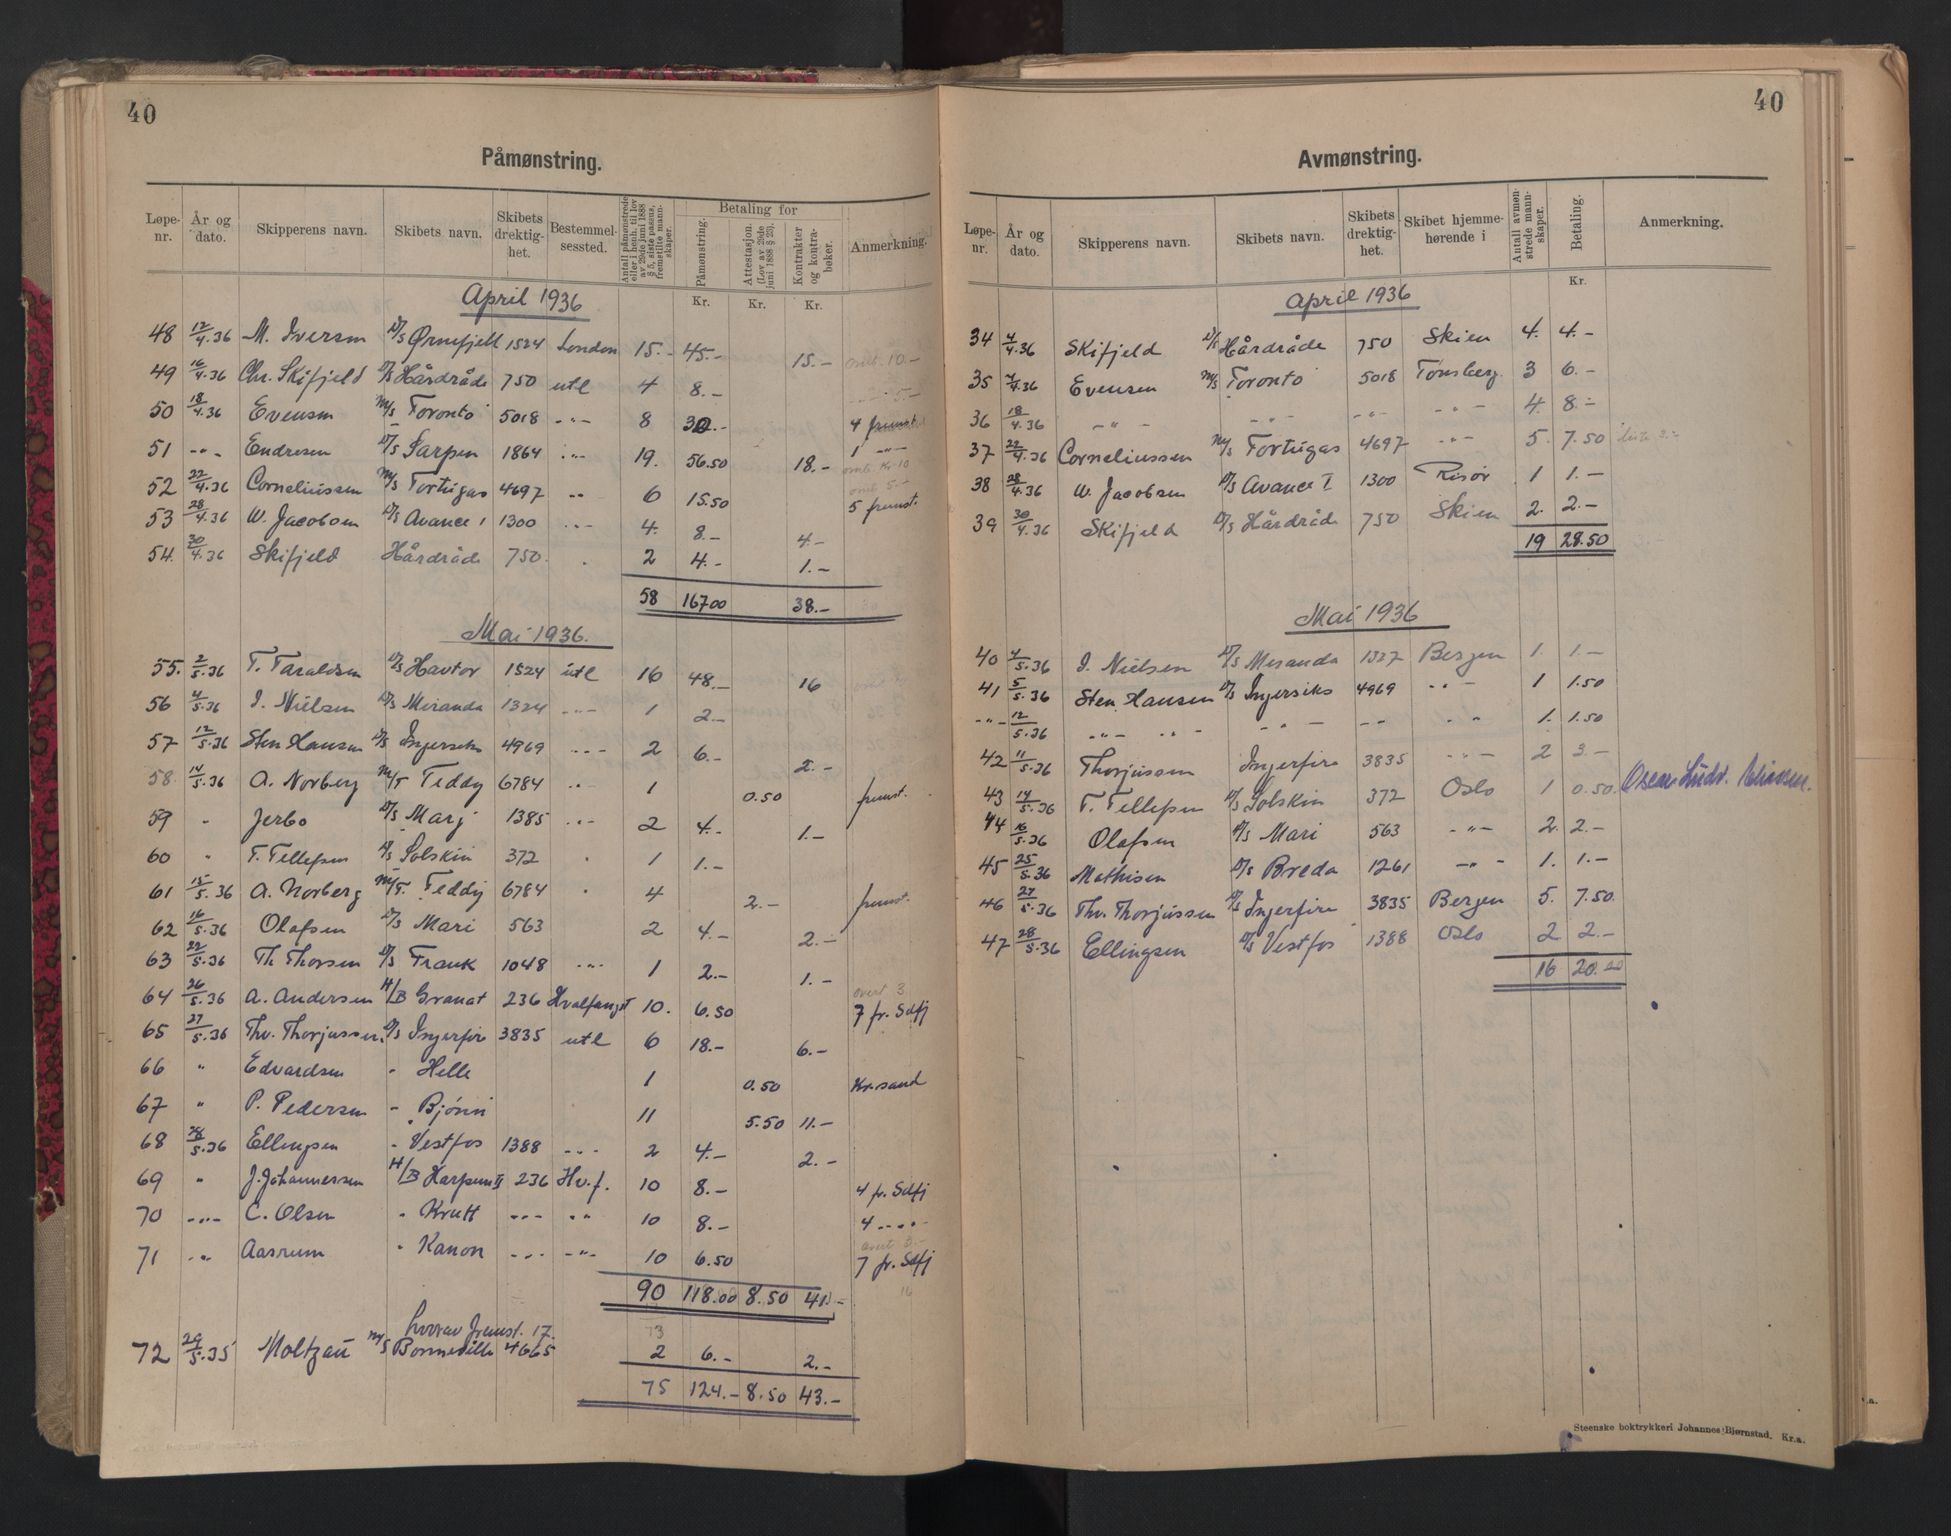 40
Påmønstring.
Løpe-nr. År og dato. Skipperens navn. Skibets navn. Skibets drektig-het. Bestemmel-sessted. Antall påmønstrede eller i henh. til lov av 29de juni 1888 § 5, siste passus, fremstilte mann-skaper. Betaling for Påmønstring. Attestasjon. (Lov av 29de juni 1888 § 23). Kontrakter og kontra-bøker. Anmerkning.
April 1936 Kr. Kr. Kr.
48 12/4.36 M. Iversen D/S Ørnefjell 1524 London 15.- 45.- 15.- omb. 10.-
49 16/4.36 Chr. Skifjeld D/S Hårdråde 750 utl 4 8.- 5.-
50 18/4.36 Evensen M/S Toronto 5018 -"- 8 30.- 4 fremst.
51 -"- Endresen D/S Sarpen 1864 -"- 19. 56.50 18.- 1 -"-
omb. Kr 10
52 22/4.36 Corneliussen M/S Tortugas 4697 -"- 6 15.50 omb. 5.- 5 fremst.
53 28/4.36 W. Jacobsen D/S Avance 1 1300 -"- 4. 8.- 4.-
54. 30/4.36 Skifjeld Hårdråde 750. 2 4.- 1.-
58 167.00 38.-
Mai 1936.
55. 2/5.36 T. Taraldsen D/S Havtor 1524 utl 16 48.- 16
56 4/5.36 I. Nielsen D/S Miranda 1324 -"- 1 2.-
57 12/5.36 Sten Hansen D/S Ingerseks 4969 -"- 2 6.- 2.-
58 14/5.36 A. Norberg M/T Teddy 6784 -"- 1 0.50 fremst.
59 " Jerbo D/S Marj 1385 -"- 2 4.- 1.-
60 " T. Tellefsen D/S Solskin 372 " 1 1.-
61 15/5.36 A. Norberg M/T. Teddy 6784 " 4 2.- fremst.
62 16/5.36 Olafsen D/S Mari 563 2 4.- 2.-
63 22/5.36 Th Thorsen D/S Frank 1048 -"- 1 2.- 1.-
64 26/5.36 A. Andersen H/B Granat 236 Hvalfangst 10. 6.50 overt 3. 7 fr. Sdfj
65 27/5.36 Thv. Thorjussen. D/S Ingerfire 3835 utl 6 18.- 6.-
66 " Edvardsen - Helle 1 0.50 Kr.sand
67 " P. Pedersen - Bjønn 11 5.50 11.-
68 28/5.36 Ellingsen - Vestfos 1388 -"- 2 4.- 2.-
69 " J. Johannessen H/B Harpun II 236 Hv.f. 10 8.- 4 fr. Sdfj
70 -"- C. Olsen " Krutt -"- " 10 8.- 4 -"-
71 -"- Aasrum " Kanon -"- -"- 10 6.50 overt 3.- 7 fr. Sdfj
90 118.00 8.50 41.- 16
hvorav fremst. 17. 73
72 29/5.35 Moltzau M/S Bonneville 4665 2 6.- 2.-
75 124.- 8.50 43.-
40
Avmønstring.
Løpe-nr. År og dato. Skipperens navn. Skibets navn. Skibets drektig-het. Skibet hjemme-hørende i Antall avmøn-strede mann-skaper. Betaling. Anmerkning.
April 1936 Kr.
34 4/4.36 Skifjeld D/S Hårdråde 750 Skien 4. 4.-
35 4/4.36 Evensen M/S Toronto 5018 Tønsberg. 3 6.-
36 18/4.36 -"- -"- -"- -"- 4. 8.-
37 22/4.36 Corneliussen M/S Tortugas 4697 -"- 5. 7.50
38 28/4.36 W. Jacobsen D/S Avance I 1300 Risør 1 1.-
39 30/4.36 Skifjeld D/S Hårdråde 750 Skien 2. 2.-
19 28.50
Mai 1936
40 4/5.36 I. Nielsen D/S Miranda 1327 Bergen 1. 1.-
41 5/5.36 Sten Hansen D/S Ingerseks 4969 -"- 1 1.50
-"- 12/5.36 -"- -"- -"- -"- " 1. 1.50
42 11/5.36 Thorjussen Ingerfire 3835 -"- 2 3.-
43 14/5.36 T. Tellefsen D/S Solskin 372 Oslo 1 0.50.
44 16/5.36 Olafsen D/S Mari 563 -"- 2 2.-
45 25/5.36 Mathisen D/S Breda 1261 -"- 1. 1.-
46 27/5.36 Thv. Thorjussen D/S Ingerfire 3835 Bergen 5. 7.50.
47 28/5.36 Ellingsen D/S Vestfos 1388 Oslo 2 2.-
16 20.00
Steenske boktrykkeri Johannes Bjørnstad. Kr.a.